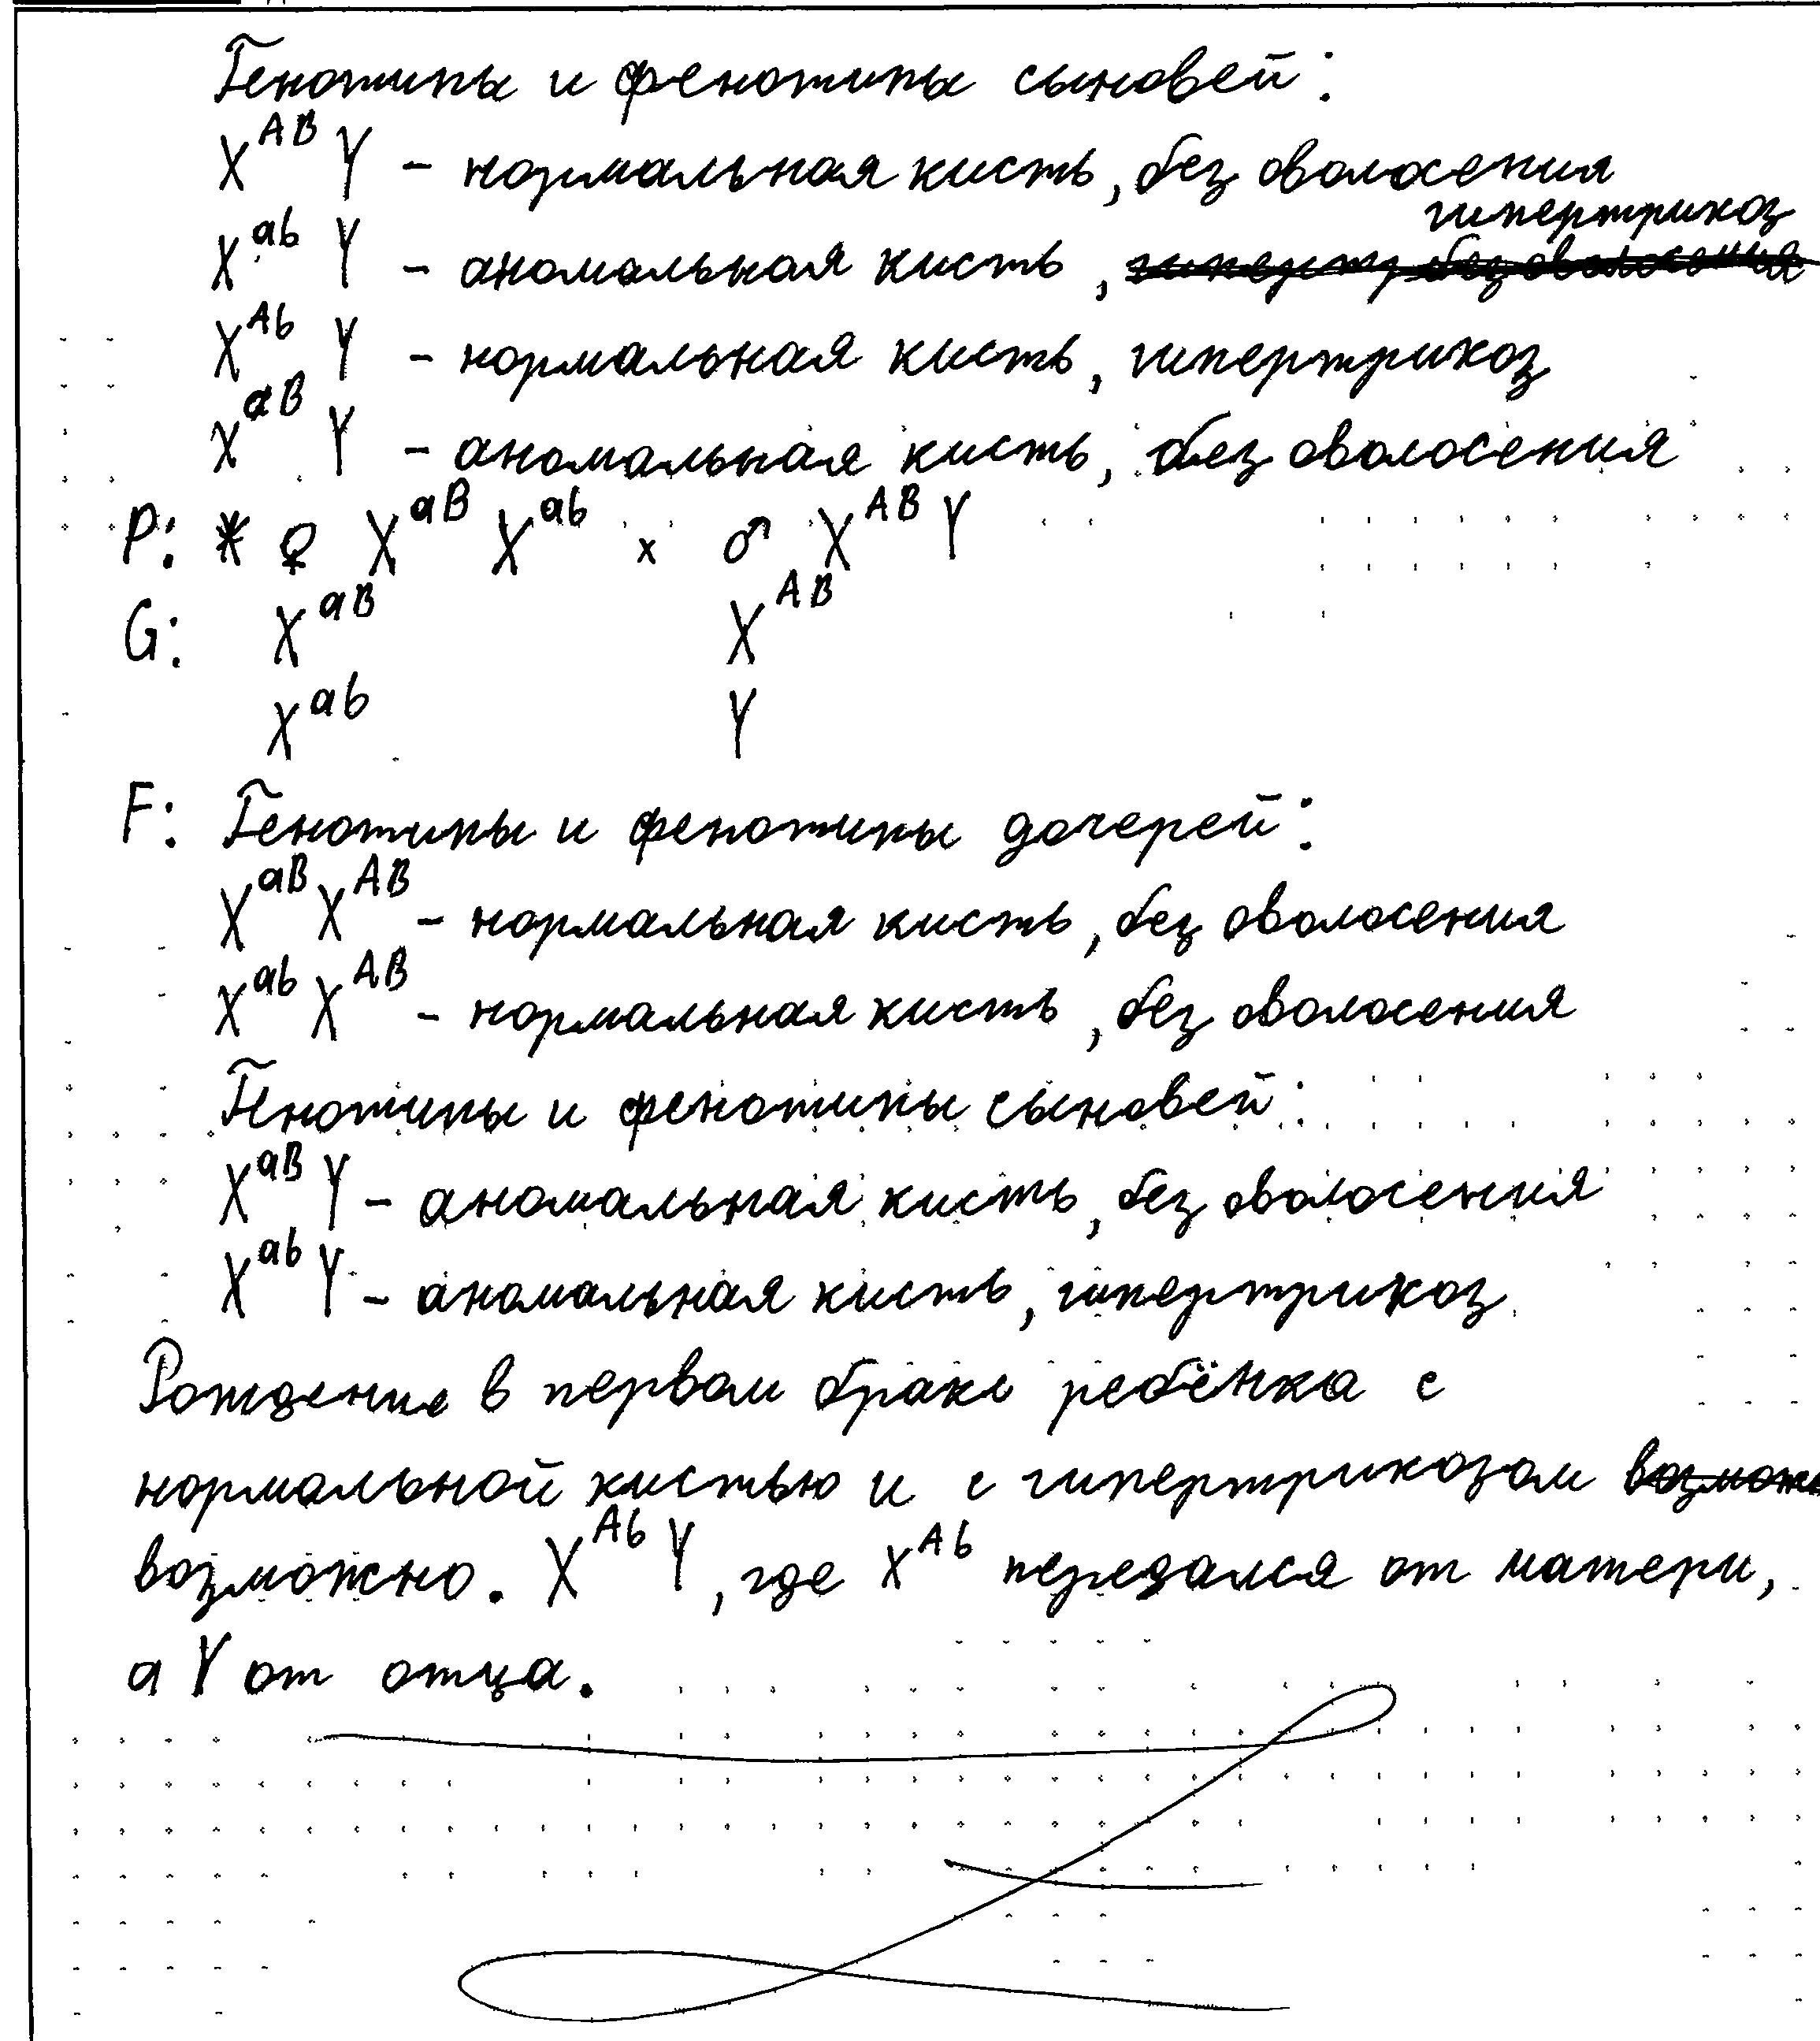 Генотипы и фенотипы сыновей:
X^AB Y – нормальная кисть, без оволосения
гипертрикоз
X^ab Y – аномальная кисть,
X^Ab Y – нормальная кисть, гипертрикоз
X^aB Y – аномальная кисть, без оволосения
P: ♀ X^aB X^ab x ♂ X^AB Y
G: X^aB X^AB
X^ab Y
F: Генотипы и фенотипы дочерей:
X^aB X^AB – нормальная кисть, без оволосения
X^ab X^AB – нормальная кисть, без оволосения
Генотипы и фенотипы сыновей:
X^aB Y – аномальная кисть, без оволосения
X^ab Y – аномальная кисть, гипертрикоз
Рождение в первом браке ребёнка с
нормальной кистью и с гипертрикозом
возможно. X^Ab Y, где X^Ab передался от матери,
а Y от отца.